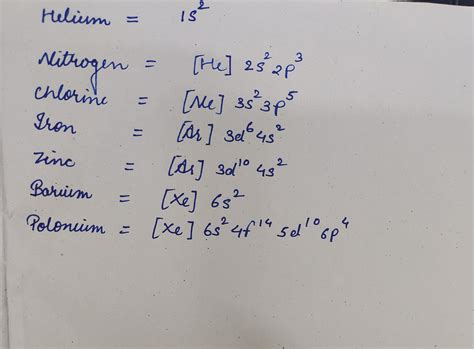 Helium = 1s²
Nitrogen = [He] 2s² 2p³
Chlorine = [Ne] 3s² 3p⁵
Iron = [Ar] 3d⁶ 4s²
Zinc = [Ar] 3d¹⁰ 4s²
Barium = [Xe] 6s²
Polonium = [Xe] 6s² 4f¹⁴ 5d¹⁰ 6p⁴